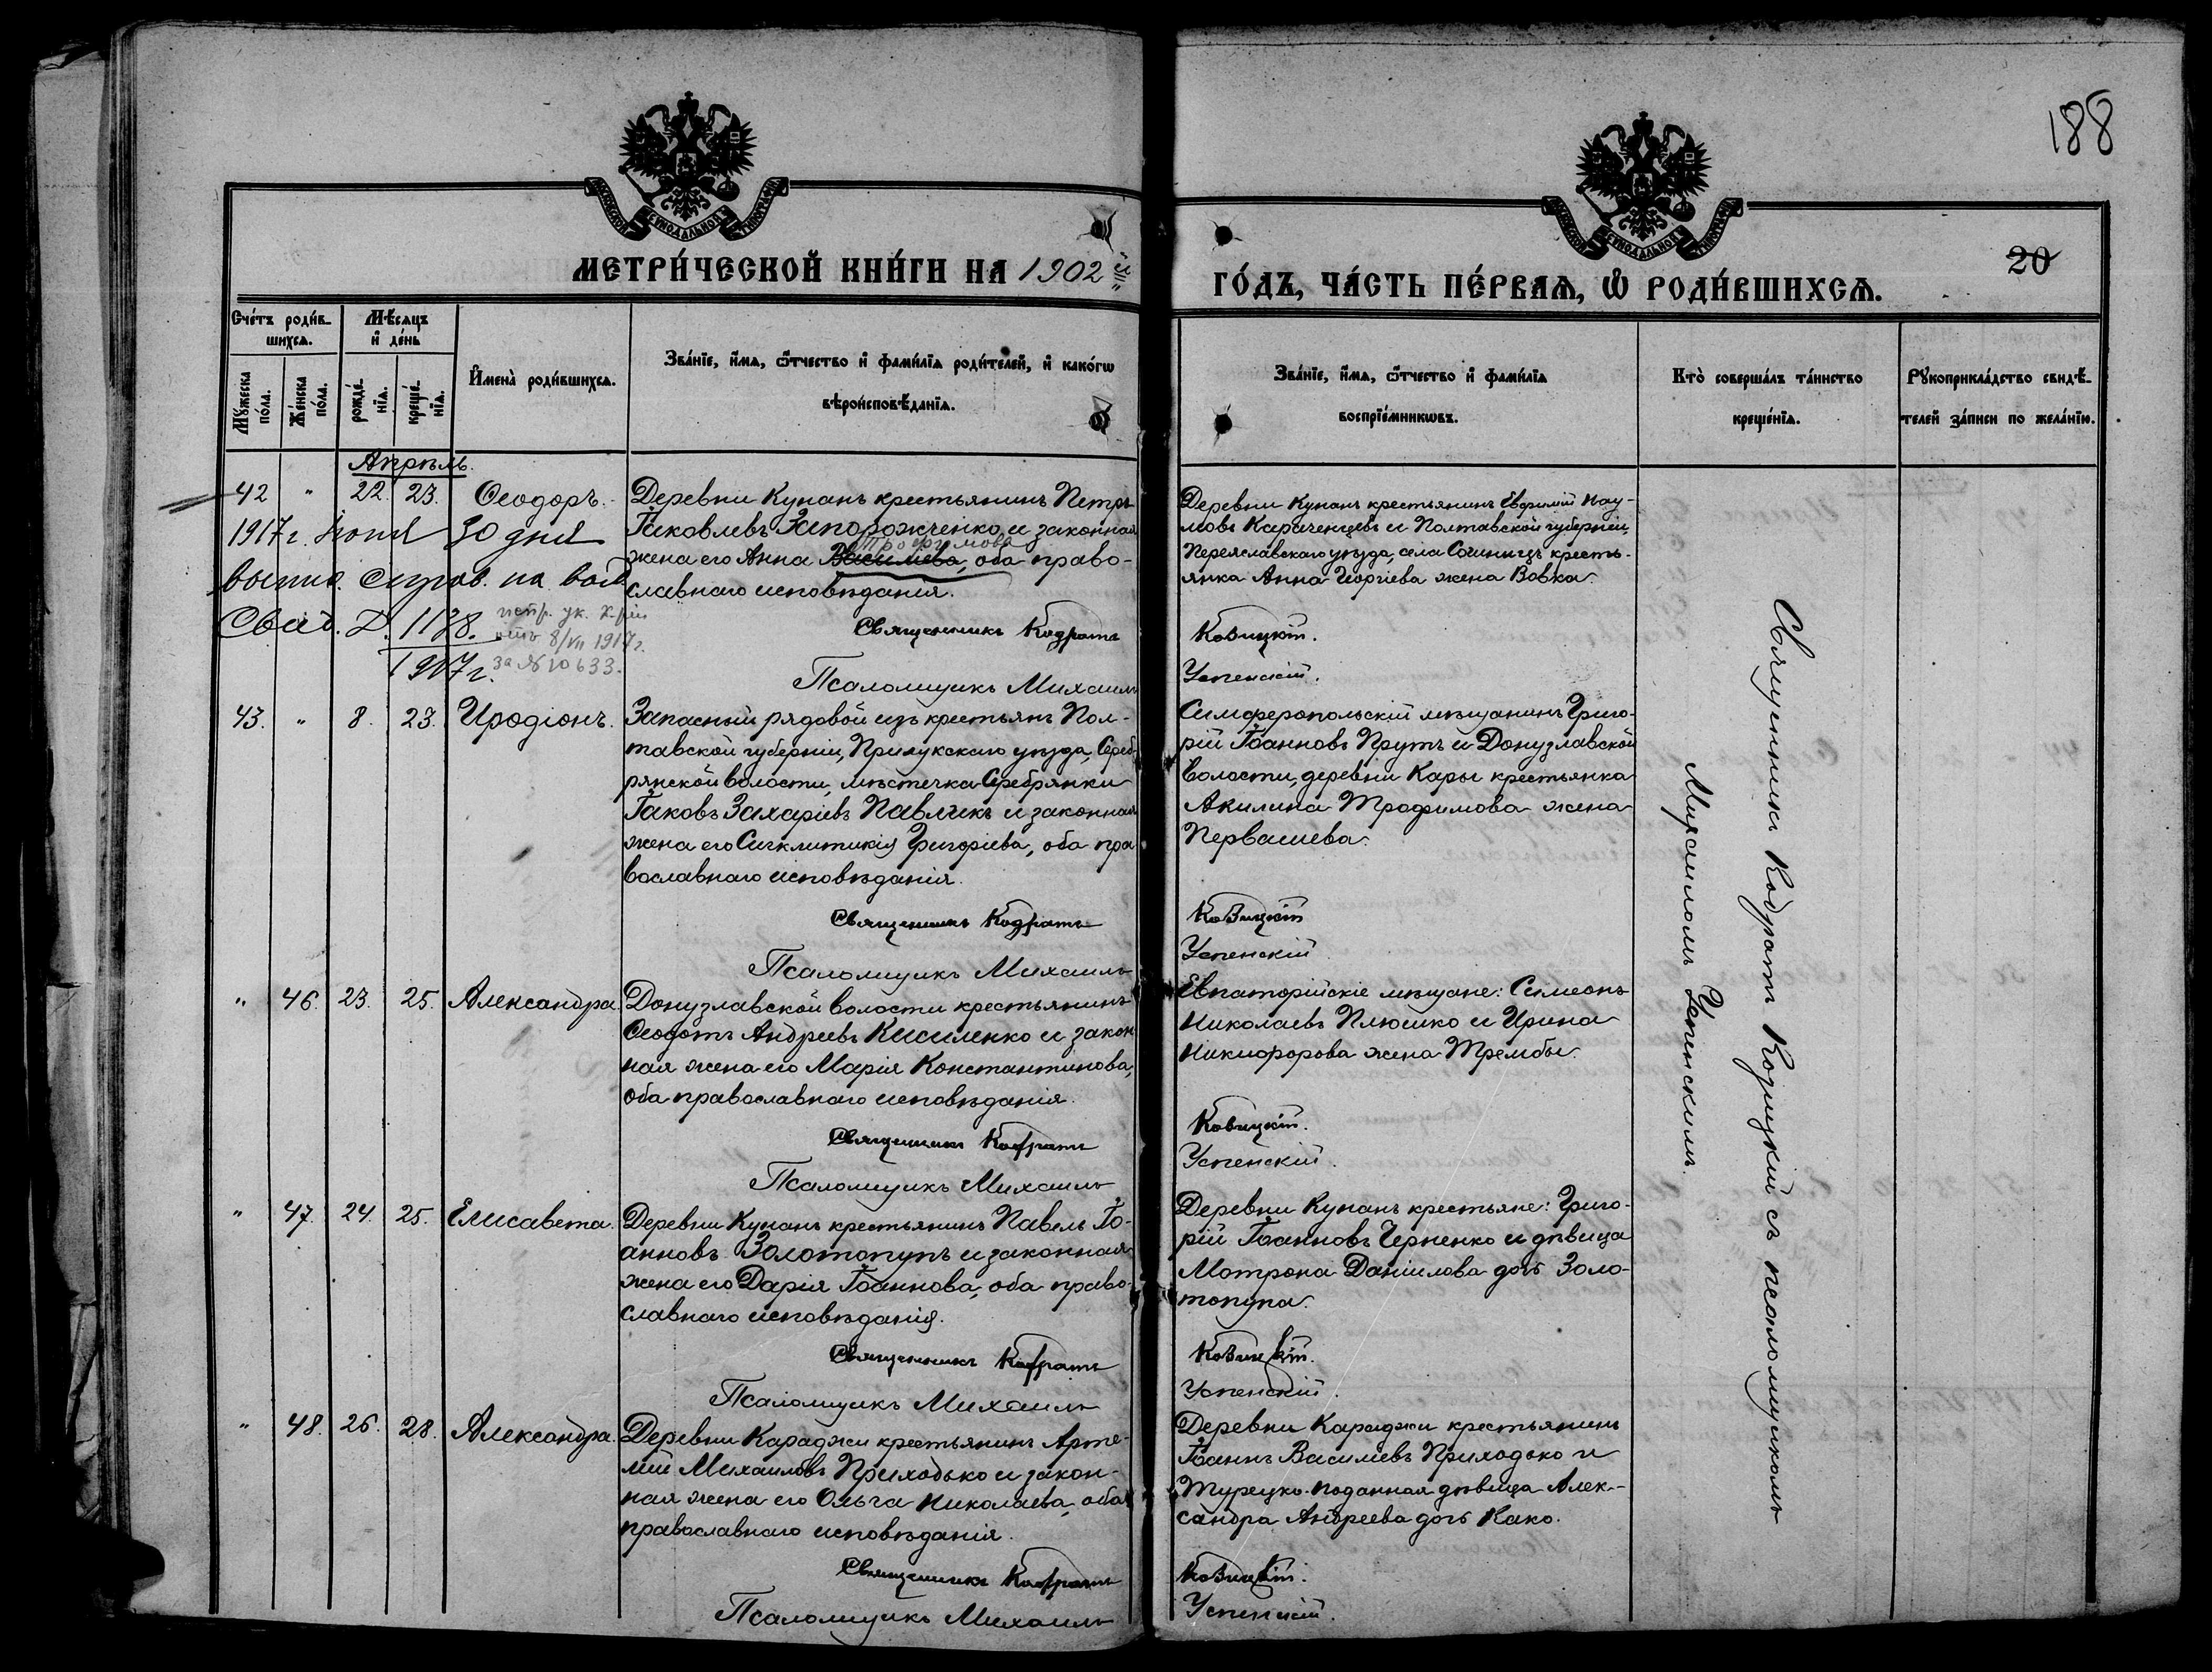 188
МЕТРИ́ЧЕСКОЙ КНИ́ГИ НА 1902 й
ГО́ДЪ, ЧА́СТЬ ПЕ́РВАѦ, Ѡ РОДИ́ВШИХСѦ.
20
Счéтъ роди́в-
шихсѧ.
Мѣсѧцъ
и де́нь
Мꙋжеска
по́ла.
Же́нска
по́ла.
рожде́-
нїѧ.
креще́-
нїѧ.
И҆мена̀ роди́вшихсѧ.
Зва́нїе, и҆́мѧ, ѻ҆́тчество и҆ фами́лїѧ роди́телей, и҆ како́гѡ
вѣроисповѣ́данїѧ.
Зва́нїе, и҆́мѧ, ѻ҆́тчество и҆ фами́лїѧ
воспрїе́мникѡвъ.
Кто̀ соверша́лъ та́инство
креще́нїѧ.
Рꙋкоприкла́дство свидѣ́-
телей за́писи по жела́нїю.
Апрѣль.
42 " 22. 23. Ѳеодоръ.
Деревни Кунанъ крестьянинъ Петръ
Іаковлевъ Запорожченко и законная
Трофимова
жена его Анна Васильева, оба право-
славнаго исповѣданія.
1917 г. Іюня 30 дня
Свид. 1128.
1917 г.
8/VII 1917 г.
за № 10633.
Священникъ Кодратъ
Псаломщикъ Михаилъ
Деревни Кунанъ крестьянинъ Евфимій Нау-
мовъ Караченцевъ и Полтавской губерніи,
Переяславскаго уѣзда, села Сошницъ кресть-
янка Анна Георгіева жена Вовка.
Ковицкій.
Успенскій.
43. " 8. 23. Иродіонъ.
Запасный рядовой изъ крестьянъ Пол-
тавской губерніи, Прилукскаго уѣзда, Среб-
рянской волости, мѣстечка Серебрянки
Іаковъ Захаріевъ Павликъ и законная
жена его Сигклитикія Григоріева, оба пра
вославнаго исповѣданія.
Священникъ Кодратъ
Псаломщикъ Михаилъ
Симферопольскій мѣщанинъ Григо-
рій Іоанновъ Прутъ и Донузлавской
волости, деревни Кары крестьянка
Акилина Трофимова жена
Первашева.
Ковицкій
Успенскій
" 46. 23. 25. Александра.
Донузлавской волости крестьянинъ
Ѳеодотъ Андреевъ Кисиленко и закон
ная жена его Марія Константинова,
оба православнаго исповѣданія.
Священникъ Кодратъ
Псаломщикъ Михаилъ
Евпаторійскіе мѣщане: Симеонъ
Николаевъ Плюшко и Ирина
Никифорова жена Трембы.
Ковицкій.
Успенскій.
" 47. 24. 25. Елисавета.
Деревни Кунанъ крестьянинъ Павелъ Іо-
анновъ Золотопупъ и законная
жена его Дарія Іоаннова, оба право-
славнаго исповѣданія.
Священникъ Кодратъ
Псаломщикъ Михаилъ
Деревни Кунанъ крестьяне: Григо-
рій Іоанновъ Черненко и дѣвица
Мотрона Даніилова дочь Золо-
топупа.
Ковицкій.
Успенскій.
" 48. 26. 28. Александра.
Деревни Караджи крестьянинъ Арте-
мій Михаиловъ Приходько и закон-
ная жена его Ольга Николаева, оба
православнаго исповѣданія.
Священникъ Кодратъ
Псаломщикъ Михаилъ
Деревни Караджи крестьянинъ
Іоаннъ Васильевъ Приходько и
Турецко-поданная дѣвица Алек-
сандра Андреева дочь Како.
Ковицкій.
Успенскій.
Священникъ Кодратъ Ковицкій съ псаломщикомъ
Михаиломъ Успенскимъ.